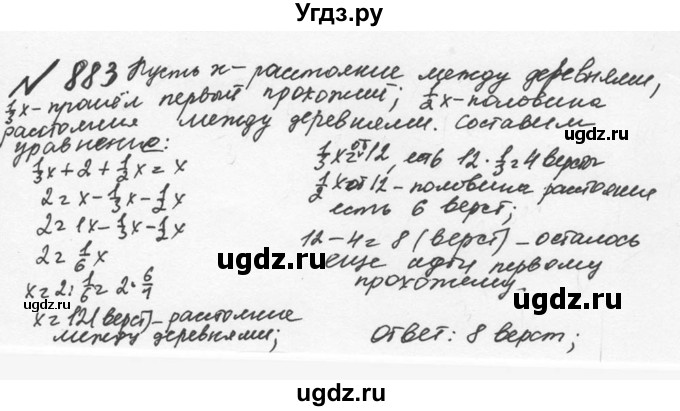 Угдз.ру
№ 883 Пусть x - расстояние между деревнями,
1/3x - прошёл первый прохожий; 1/2x - половина
расстояния между деревнями. Составим
уравнение:
1/3x + 2 + 1/2x = x
2 = x - 1/3x - 1/2x
2 = 1x - 1/3x - 1/2x
2 = 1/6x
x = 2 : 1/6 = 2 · 6/1
x = 12 (верст) - расстояние
между деревнями;
1/3 x от 12, есть 12 · 1/3 = 4 верст
1/2 x от 12 - половина расстояния
есть 6 верст;
12 - 4 = 8 (верст) - осталось
еще идти первому
прохожему
Ответ: 8 верст;
ugdz.ru
ugdz.ru
ugdz.ru
ugdz.ru
ugdz.ru
ugdz.ru
ugdz.ru